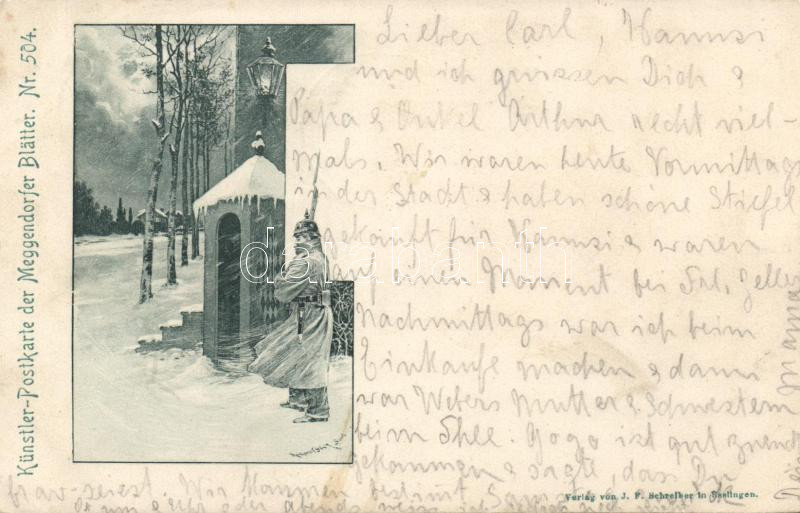 Künstler-Postkarte der Meggendorfer Blätter. Nr. 504.
Lieber Carl, Hannsi
und ich grüssen Dich &
Papa & Onkel Arthur recht viel-
mals. Wir waren heute Vormittags
in der Stadt & haben schöne Stiefel
gekauft für Hannsi & waren
auf einen Moment bei Frl. Zeller
Nachmittags war ich beim
Einkaufe machen & dann
war Webers Mutter & Schwestern
beim Thee. Gogo ist gut
gekommen & sagte dass Du
brav seiest. Wir kommen bestimmt
Uhr oder abends weiss ich noch nicht
Mama
Verlag von J. F. Schreiber in Esslingen.
darabanth